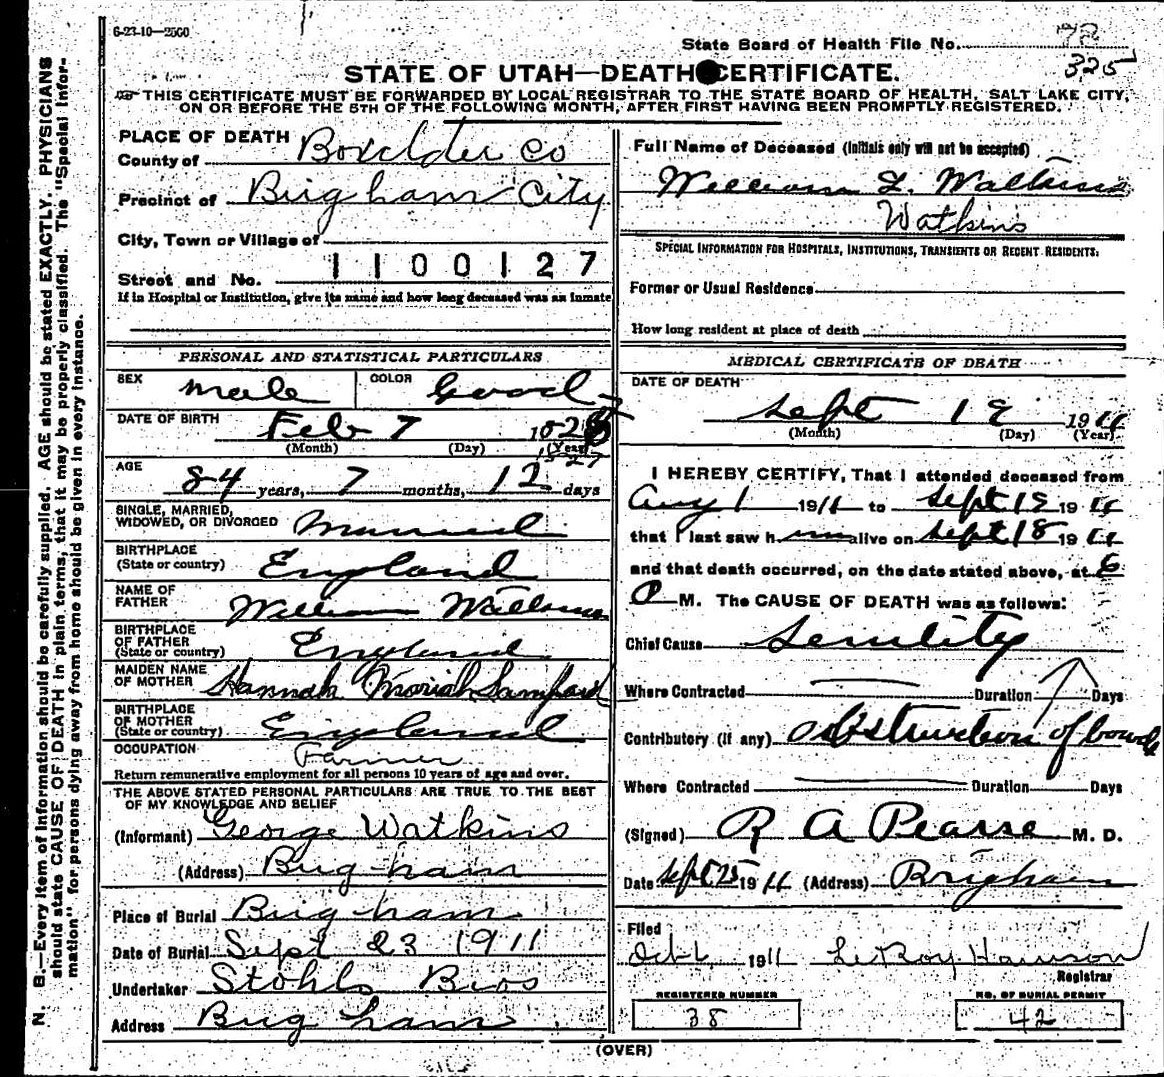 6-23-10—2500
State Board of Health File No. 78
325
STATE OF UTAH—DEATH CERTIFICATE.
THIS CERTIFICATE MUST BE FORWARDED BY LOCAL REGISTRAR TO THE STATE BOARD OF HEALTH, SALT LAKE CITY,
ON OR BEFORE THE 5TH OF THE FOLLOWING MONTH, AFTER FIRST HAVING BEEN PROMPTLY REGISTERED.
N. B.—Every item of information should be carefully supplied. AGE should be stated EXACTLY. PHYSICIANS
should state CAUSE OF DEATH in plain terms, that it may be properly classified. The "Special Infor-
mation" for persons dying away from home should be given in every instance.
PLACE OF DEATH
County of Boxelder Co
Precinct of Brigham City
City, Town or Village of
Street and No. 1100127
If in Hospital or Institution, give its name and how long deceased was an inmate
PERSONAL AND STATISTICAL PARTICULARS
SEX Male COLOR Good
DATE OF BIRTH Feb 7
(Month) (Day) (Year)
1827
AGE 84 years, 7 months, 12 days
SINGLE, MARRIED,
WIDOWED, OR DIVORCED Married
BIRTHPLACE
(State or country) England
NAME OF
FATHER William Watkins
BIRTHPLACE
OF FATHER
(State or country) England
MAIDEN NAME
OF MOTHER Hannah Mariah
BIRTHPLACE
OF MOTHER
(State or country) England
OCCUPATION Farmer
Return remunerative employment for all persons 10 years of age and over.
THE ABOVE STATED PERSONAL PARTICULARS ARE TRUE TO THE BEST
OF MY KNOWLEDGE AND BELIEF
(Informant) George Watkins
(Address) Brigham
Place of Burial Brigham
Date of Burial Sept 23 1911
Undertaker Stohls Bros
Address Brigham
Full Name of Deceased (Initials only will not be accepted)
William L. Watkins
Watkins
SPECIAL INFORMATION FOR HOSPITALS, INSTITUTIONS, TRANSIENTS OR RECENT RESIDENTS:
Former or Usual Residence
How long resident at place of death
MEDICAL CERTIFICATE OF DEATH
DATE OF DEATH
Sept 19 1911
(Month) (Day) (Year)
I HEREBY CERTIFY, That I attended deceased from
Aug 1 1911 to Sept 19 1911
that I last saw him alive on Sept 18 1911
and that death occurred, on the date stated above, at 6
P M. The CAUSE OF DEATH was as follows:
Chief Cause Senility
Where Contracted Duration Days
Contributory (if any) obstruction of bowels
Where Contracted Duration Days
(Signed) R A Pearse M. D.
Date Sept 25 1911 (Address) Brigham
Filed
Oct 6, 1911 LeRoy Hanson
Registrar
REGISTERED NUMBER
38
NO. OF BURIAL PERMIT
42
(OVER)